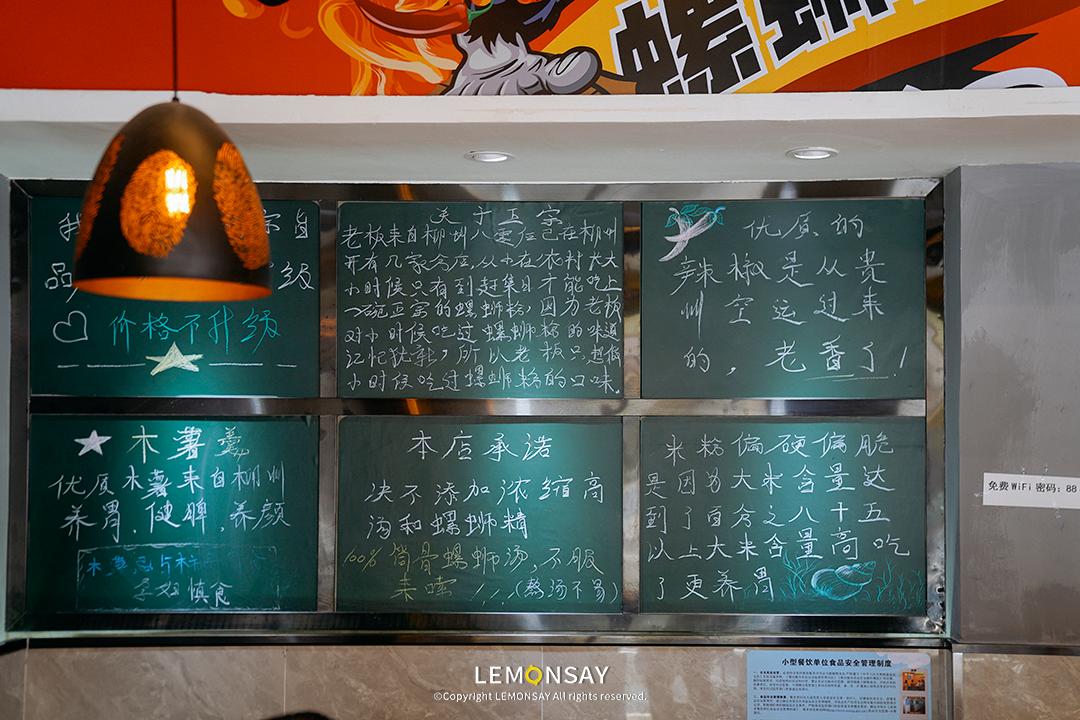 螺蛳
我
品
级
价格不升级
关于正宗
老板来自柳州八零后已在柳州
开有几家食店,从小在农村长大
小时候只有到赶集日才能吃上
一碗正宗的螺蛳粉,因为老板
对小时候吃过螺蛳粉的味道
记忆犹新,所以老板只想做
小时候吃过螺蛳粉的口味.
优质的
辣椒是从贵
州空运过来
的,老香了!
木薯羹
优质木薯来自柳州
养胃.健脾.养颜
孕妇慎食
本店承诺
决不添加浓缩高
汤和螺蛳精
100%筒骨螺蛳汤,不服
来嗦!!!(熬汤不易)
米粉偏硬偏脆
是因为大米含量达
到了百分之八十五
以上大米含量高吃
了更养胃
免费WiFi 密码:88
小型餐饮单位食品安全管理制度
LEMONSAY
©Copyright LEMONSAY All rights reserved.